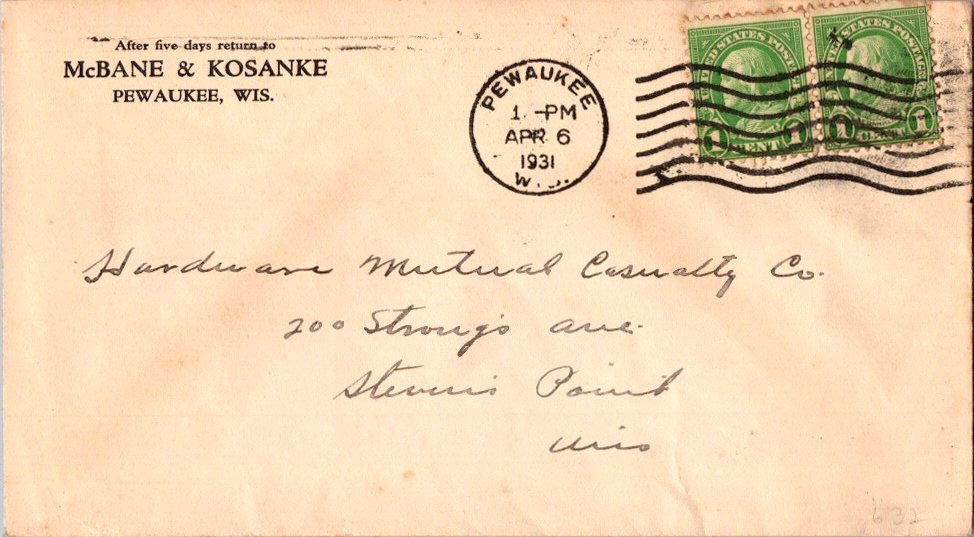 After five days return to
McBANE & KOSANKE
PEWAUKEE, WIS.
PEWAUKEE
1 - PM
APR 6
1931
UNITED STATES POSTAGE
1 CENT 1
UNITED STATES POSTAGE
1 CENT 1
Hardware Mutual Casualty Co.
200 Strong's ave.
Stevens Point
Wis
632